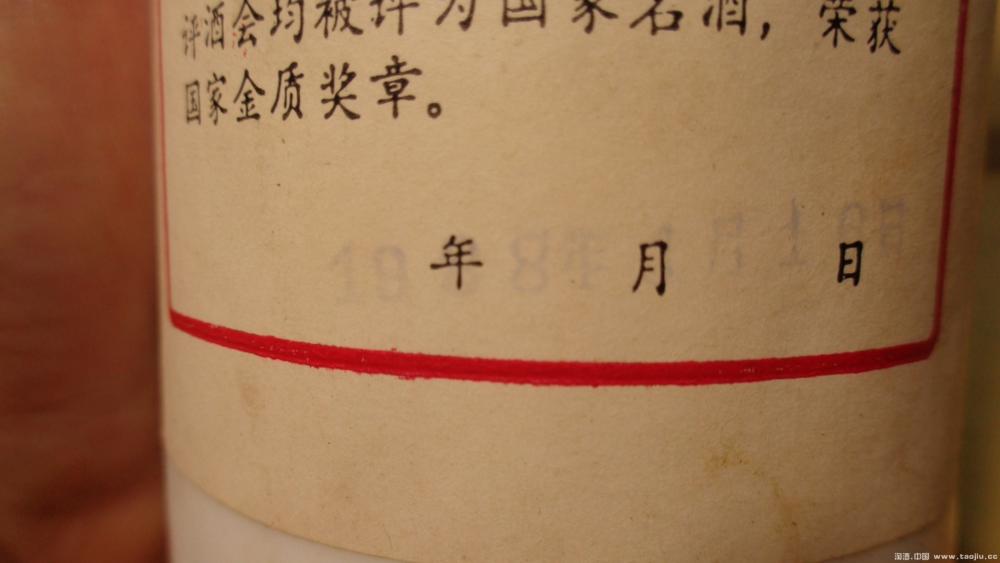 评酒会均被评为国家名酒，荣获
国家金质奖章。
年 月 日
淘酒.中国 www.taojiu.cc